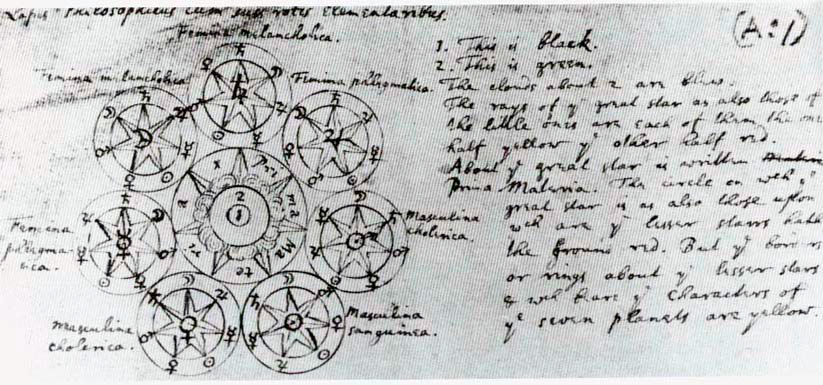 Lapis Philosophicus cum suis rotis elementaribus.
(A:1)
Femina melancholica.
Femina melancholica
Femina phlegmatica.
Femina phlegmatica.
Masculina cholerica.
masculina cholerica.
Masculina sanguinea.
Prima Materia
2
1
1. This is black.
2. This is green.
The clouds about 2 are blew.
The rays of yͤ great star as also those of
the little ones are each of them the one
half yellow yͤ other half red.
About yͤ great star is written
Prima Materia. The circle on wch yͤ
great star is as also those upon
wch are yͤ lesser starrs hath
the ground red. But yͤ borders
or rings about yͤ lesser stars
& wch beare yͤ characters of
yͤ seven planets are yellow.